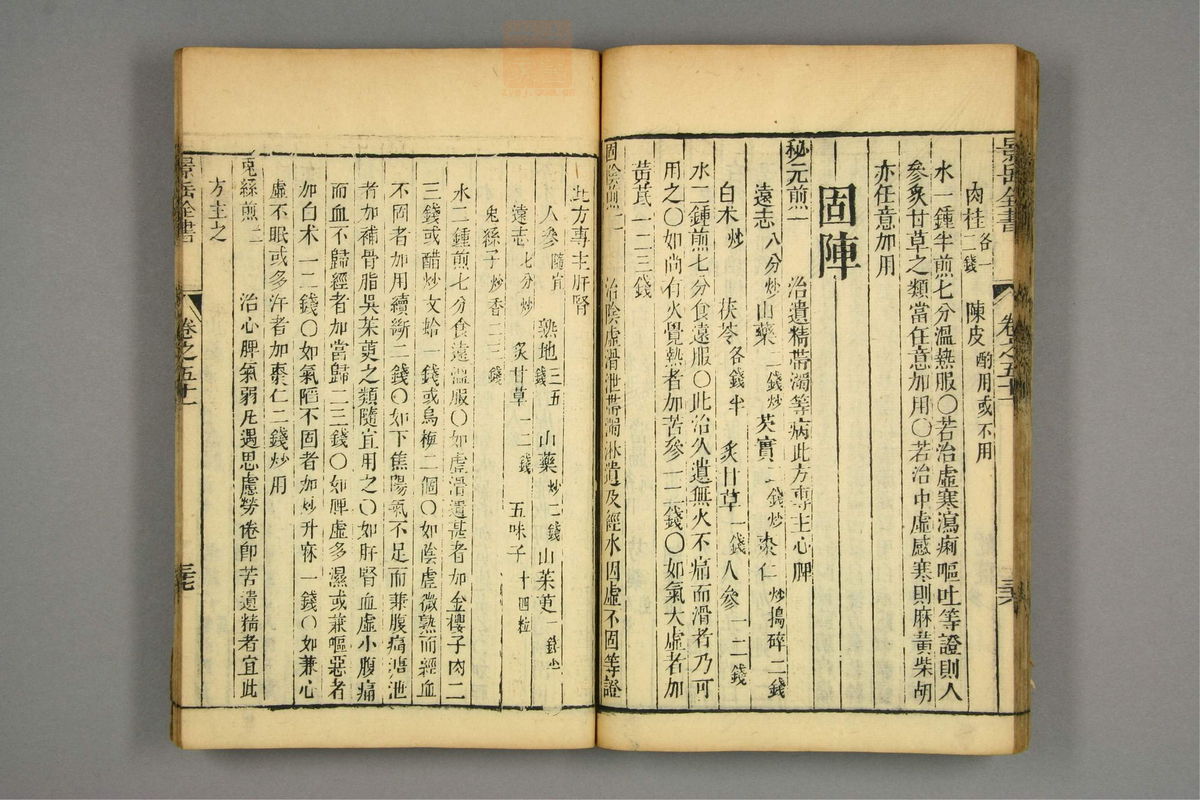 景岳全書 卷之五十一 三六
肉桂各一二錢 陳皮酌用或不用
水一鍾半煎七分溫熱服○若治虛寒瀉痢嘔吐等證則人
參炙甘草之類當任意加用○若治中虛感寒則麻黃柴胡
亦任意加用
固陣
秘元煎一 治遺精帶濁等病此方專主心脾
遠志八分炒 山藥二錢炒 芡實二錢炒 棗仁炒搗碎二錢
白朮炒 茯苓各錢半 炙甘草一錢 人參一二錢
水二鍾煎七分食遠服○此治久遺無火不痛而滑者乃可
用之○如尚有火覺熱者加苦參一二錢○如氣大虛者加
黃芪一二三錢
固陰煎二 治陰虛滑泄帶濁淋遺及經水因虛不固等證
此方專主肝腎
人參隨宜 熟地三五錢 山藥炒二錢 山茱萸一錢半
遠志七分炒 炙甘草一二錢 五味子十四粒
兔絲子炒香二三錢
水二鍾煎七分食遠溫服○如虛滑遺甚者加金櫻子肉二
三錢或醋炒文蛤一錢或烏梅二個○如陰虛微熱而經血
不固者加用續斷二錢○如下焦陽氣不足而兼腹痛溏泄
者加補骨脂吳茱萸之類隨宜用之○如肝腎血虛小腹痛
而血不歸經者加當歸二三錢○如脾虛多濕或兼嘔惡者
加白朮一二錢○如氣陷不固者加炒升麻一錢○如兼心
虛不眠或多汗者加棗仁二錢炒用
兔絲煎三 治心脾氣弱凡遇思慮勞倦即苦遺精者宜此
方主之
景岳全書 卷之五十一 三七